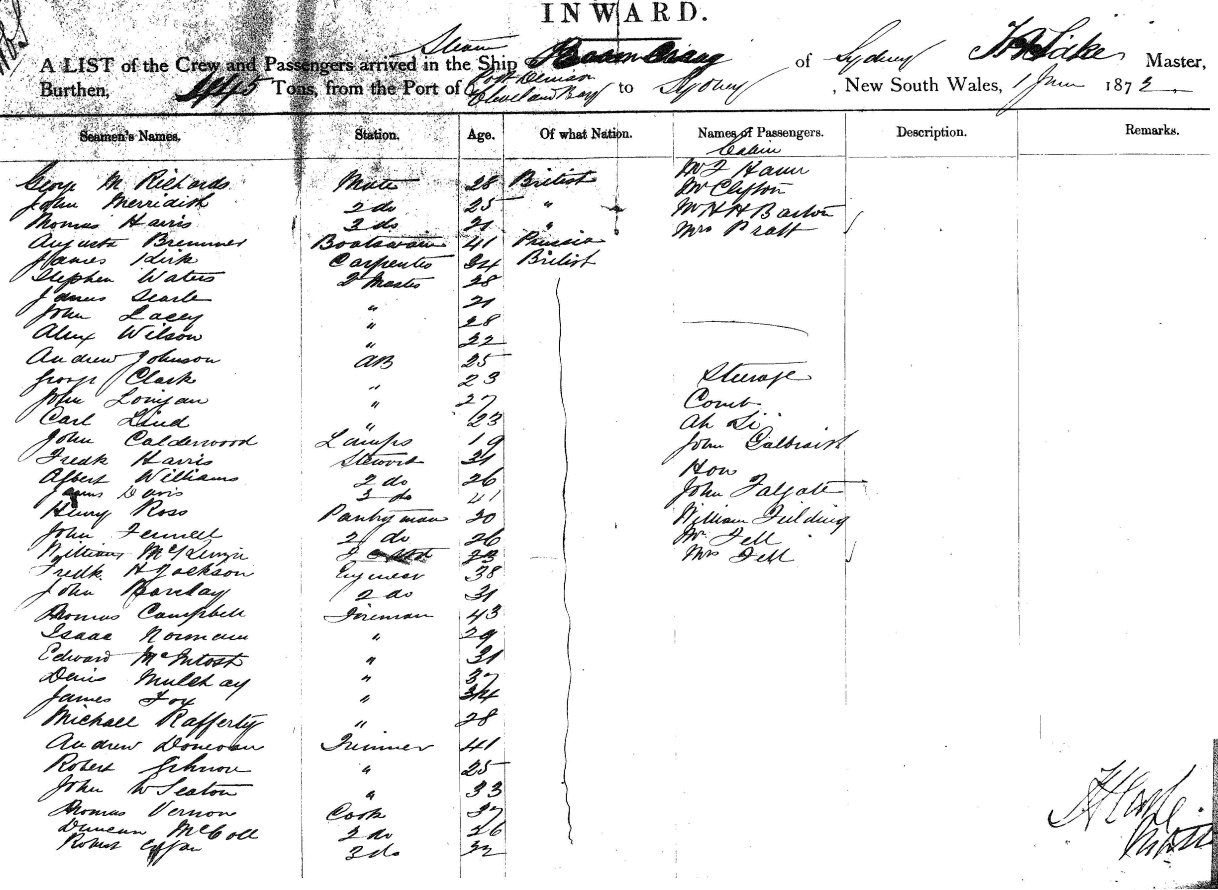 INWARD.
Steam
A LIST of the Crew and Passengers arrived in the Ship of Sydney Master,
Burthen, 445 Tons, from the Port of Port Denison Cleveland Bay to Sydney , New South Wales, 1 June 1872
Seamen's Names. Station. Age. Of what Nation. Names of Passengers. Description. Remarks.
Cabin
George M Richards Mate 28 British Hann
John Merridith 2 do 25 " Mr Clifton
Thomas Harris 3 do 21 " Mr H H Barton
August Bremmer Boatswain 41 Prussia Mrs Pratt
James Kirk Carpenter 24 British
Stephen Waters 28
James Searle " 21
John Lacey " 28
Alex Wilson " 22
Andrew Johnson AB 25
George Clark " 23 Steerage
John " 27
Carl Lind " 23 Ah Li
John Calderwood Lamps 19 John Galbraith
Fredk Harris 31 Hou
Albert Williams 2 do 26 John Falgate
James Davis 3 do 41
Henry Ross Pantryman 20 William Fielding
John Fennell 2 do 26 Mr Fell
William McKenzie 23 Mrs Fell
Fredk H Jackson Engineer 38
John Barclay 2 do 31
Thomas Campbell Fireman 43
Isaac Normann " 29
Edward McIntosh " 31
Denis " 37
James Fox " 34
Michael Rafferty " 28
Andrew Donovan Trimmer 41
Robert " 25
John W Seaton " 33
Thomas Vernon Cook 37
Duncan McColl 2 do 26
Robert 3 do 32